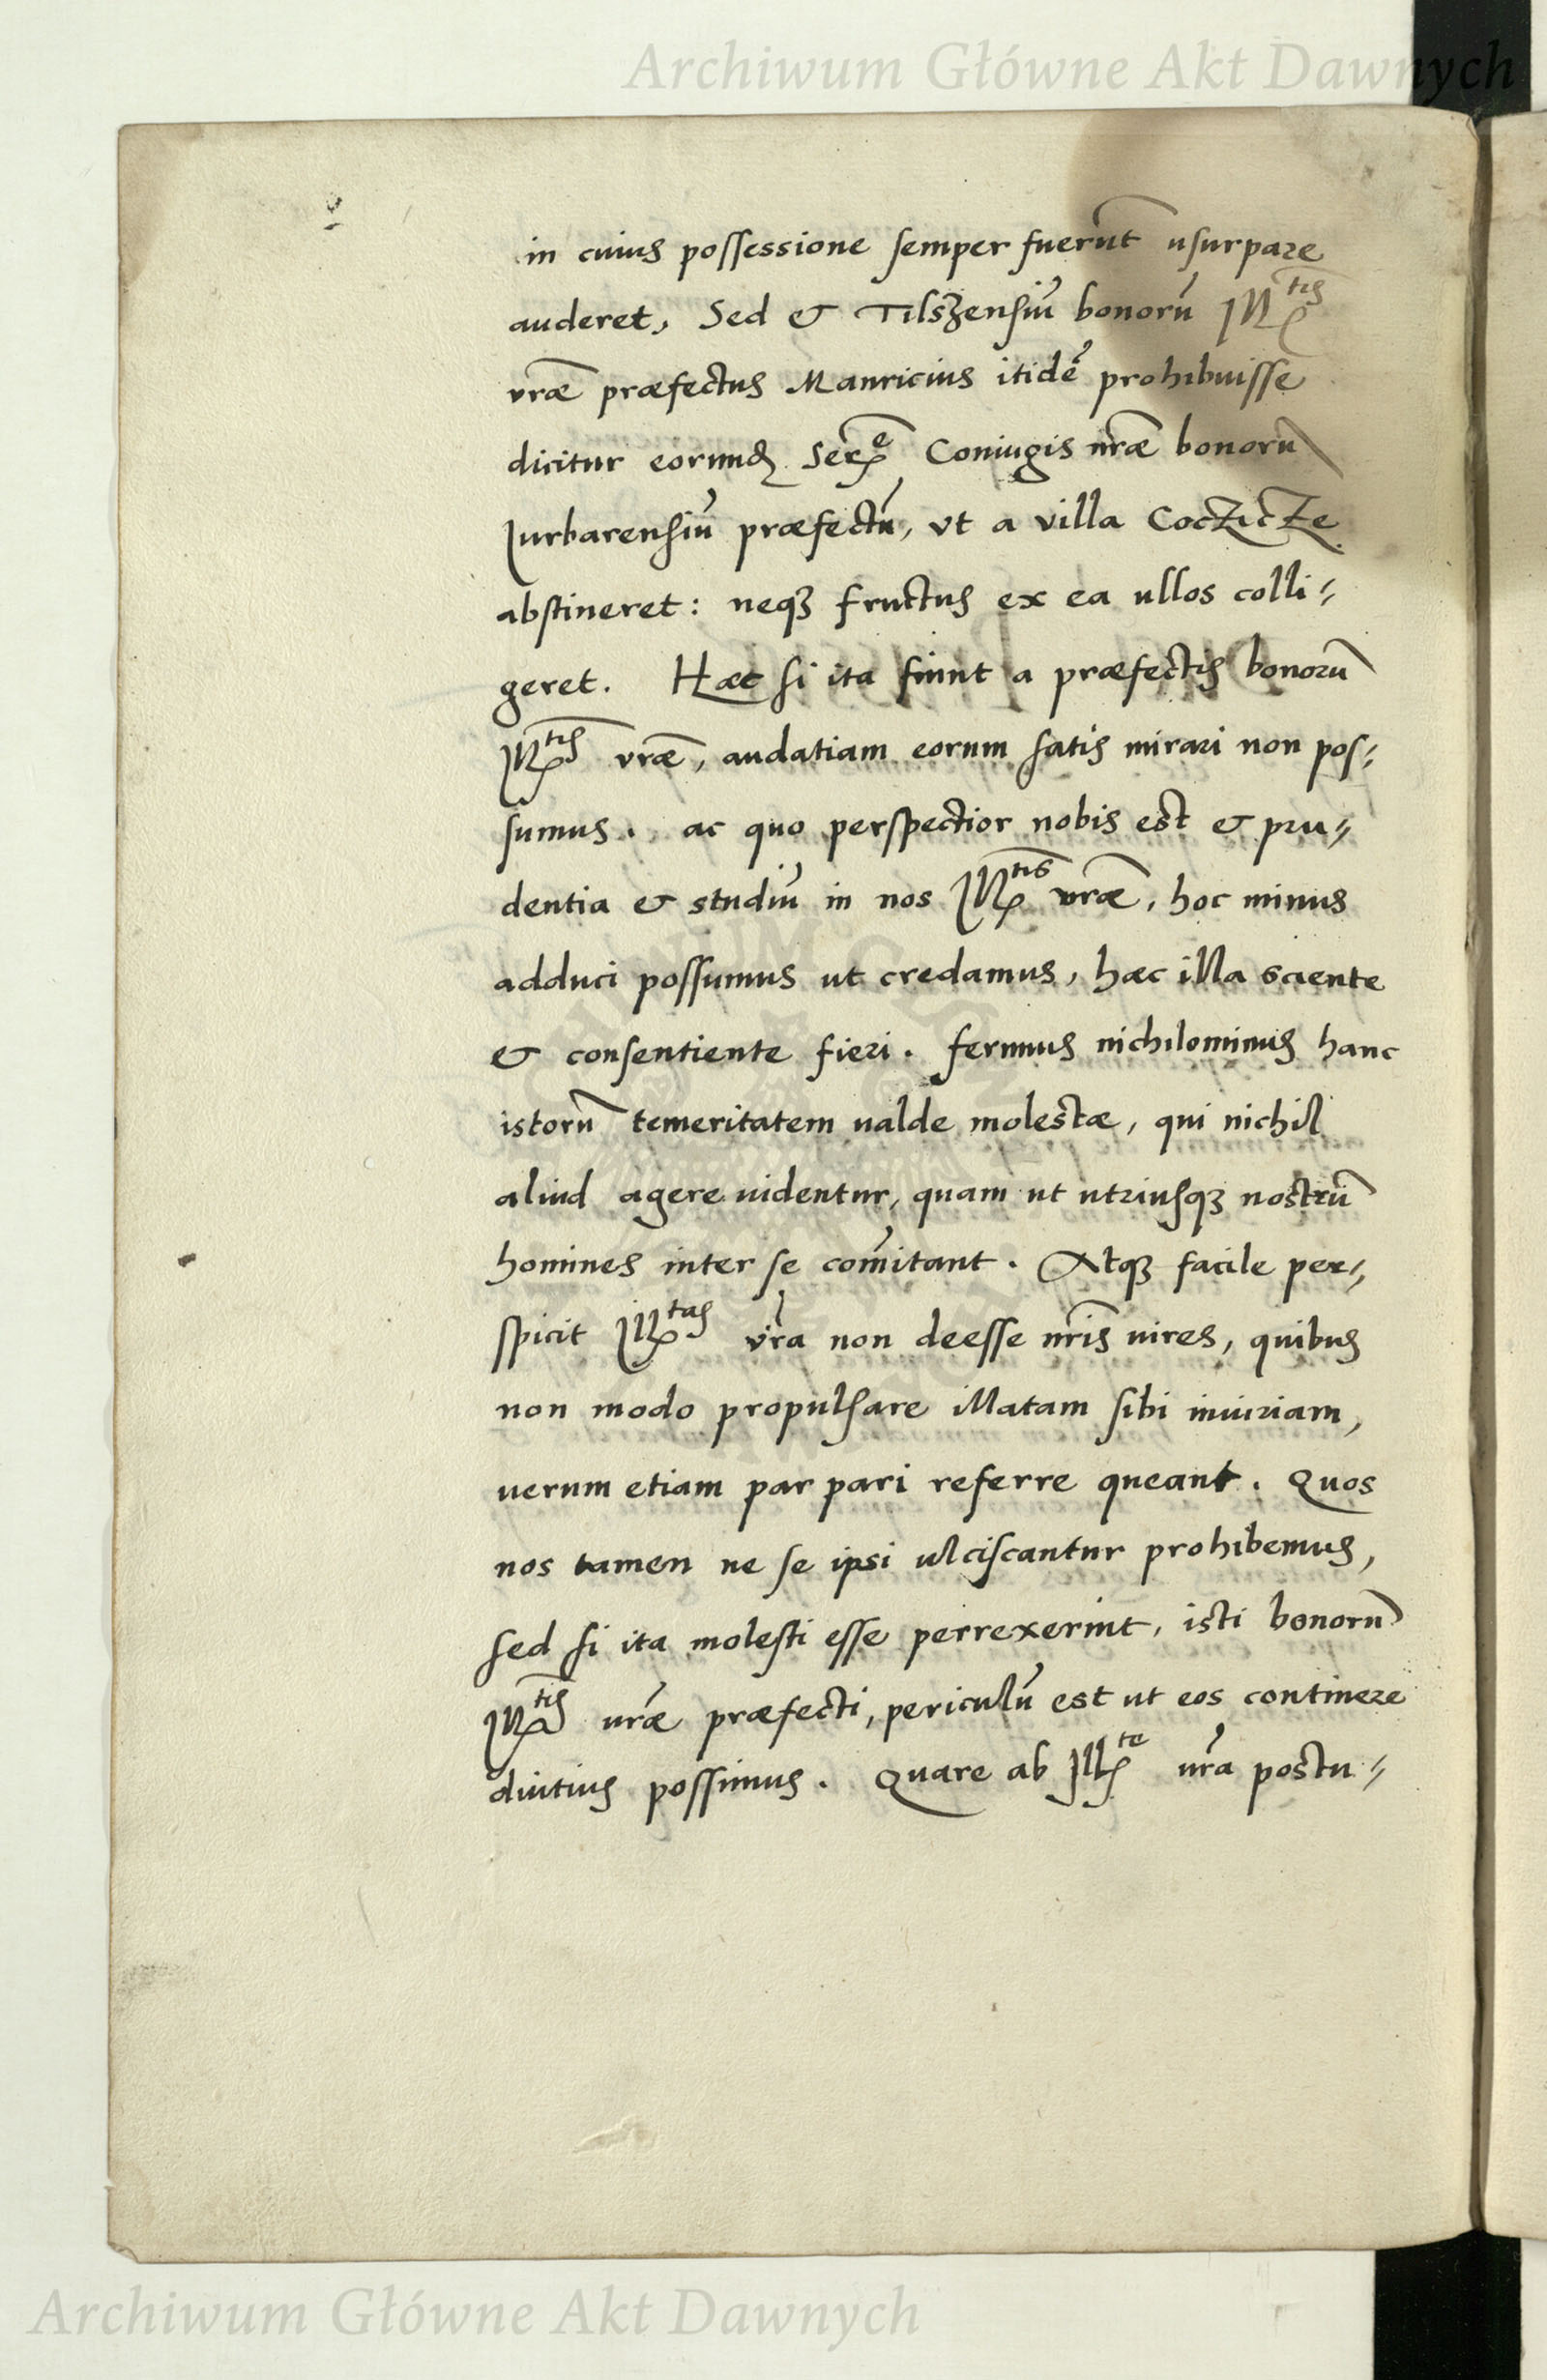 Archiwum Główne Akt Dawnych
in cuius possessione semper fuerūt usurpare
auderet, Sed & Tilszensiū bonorū Ill^tis
vrāe præfectus Mauricius itidē prohibuisse
dicitur eorund. Ser^e Coniugis nrāe bonorū
Jurbarensiū præfectū, vt a villa CocZicZe
abstineret: neqꝫ fructus ex ea ullos colli⸗
geret. Hæc si ita fiunt a præfectis bonorū
Ill^tis vrāe, audatiam eorum satis mirari non pos⸗
sumus. ac quo perspectior nobis est & pru⸗
dentia & studiū in nos Ill^tis vrāe, hoc minus
adduci possumus ut credamus, hæc illa sciente
& consentiente fieri. ferimus nichilominus hanc
istorū temeritatem ualde molestæ, qui nichil
aliud agere uidentur, quam ut utriusqꝫ nostrū
homines inter se com̄itant. Atqꝫ facile per⸗
spicit Ill^tas vr̄a non deesse nrīs uires, quibus
non modo propulsare illatam sibi iniuriam,
uerum etiam par pari referre queant. Quos
nos tamen ne se ipsi ulciscantur prohibemus,
sed si ita molesti esse perrexerint, isti bonorū
Ill^tis urāe præfecti, periculū est ut eos continere
diutius possimus. Quare ab Ill^te ur̄a postu⸗
Archiwum Główne Akt Dawnych